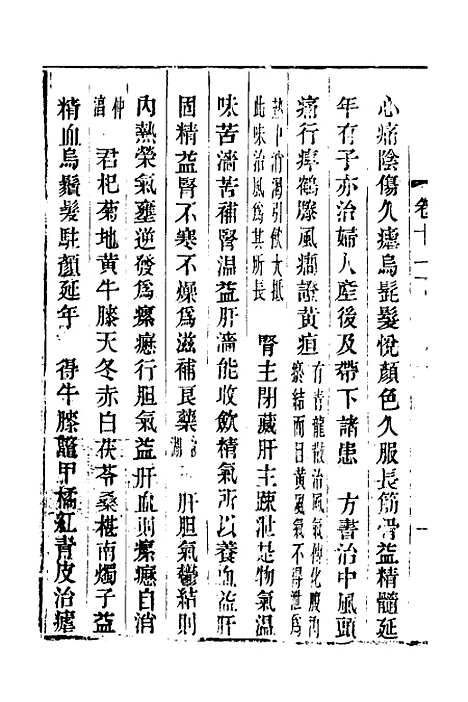 卷十一
心痛陰傷久瘧烏髭髮悅顏色久服長筋骨益精髓延
年有子亦治婦人產後及帶下諸患　方書治中風頭
痛行痹鶴膝風癇證黃疸有青龍散治風氣傳化腹內瘀結而目黃風氣不得泄爲
熱中消渴引飲大抵此味治風爲其所長　腎主閉藏肝主疎泄是物氣温
味苦濇苦補腎温益肝濇能收歛精氣所以養血益肝
固精益腎不寒不燥爲滋補良藥　肝胆氣鬱結則
內熱榮氣壅逆發爲瘰癧行胆氣益肝血則瘰癧自消
仲淳　君杞菊地黄牛膝天冬赤白茯苓桑椹南燭子益
精血烏鬚髮駐顏延年　得牛膝鼈甲橘紅青皮治瘧